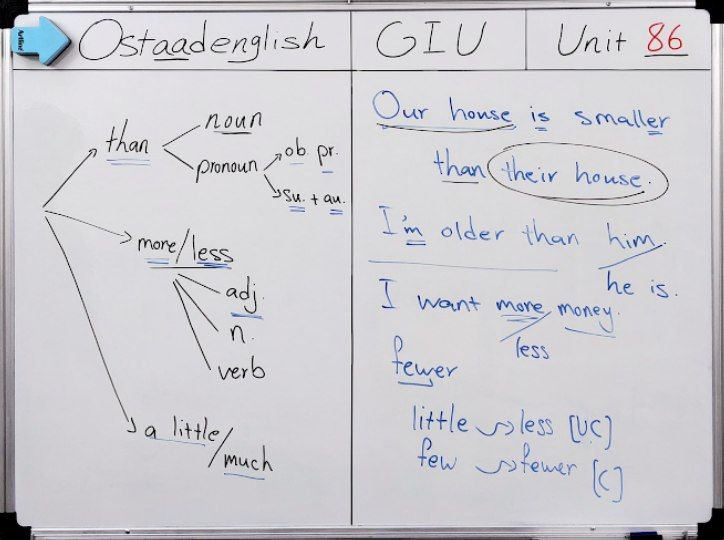 Artline
Ostaadenglish
GIU
Unit 86
than
noun
pronoun
ob. pr.
su. + au.
more/less
adj.
n.
verb
a little/much
Our house is smaller
than their house.
I'm older than him.
he is.
I want more money.
less
fewer
little → less [UC]
few → fewer [C]